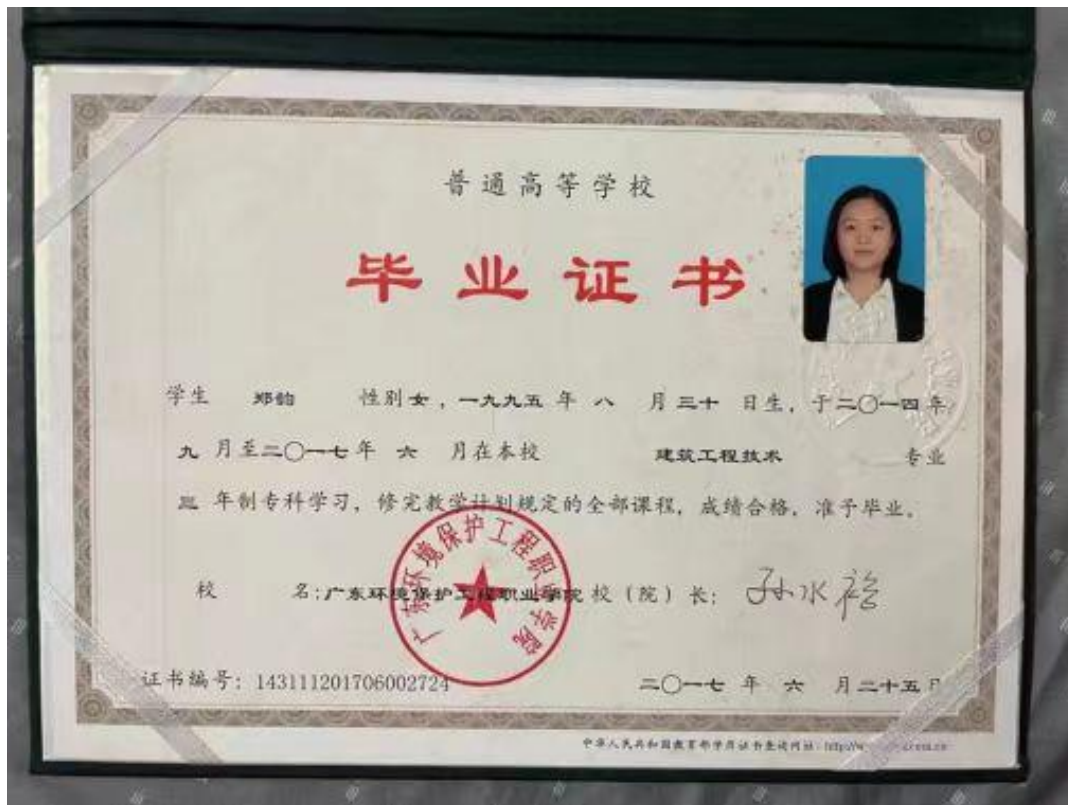 普通高等学校
毕业证书
学生 郑韵 性别女，一九九五年八月三十日生，于二〇一四年
九月至二〇一七年六月在本校 建筑工程技术 专业
三年制专科学习，修完教学计划规定的全部课程，成绩合格，准予毕业。
校 名：广东环境保护工程职业学院 校（院）长：孙水裕
广东环境保护工程职业学院
证书编号：143111201706002724 二〇一七年六月二十五日
中华人民共和国教育部学历证书查询网址：http://w